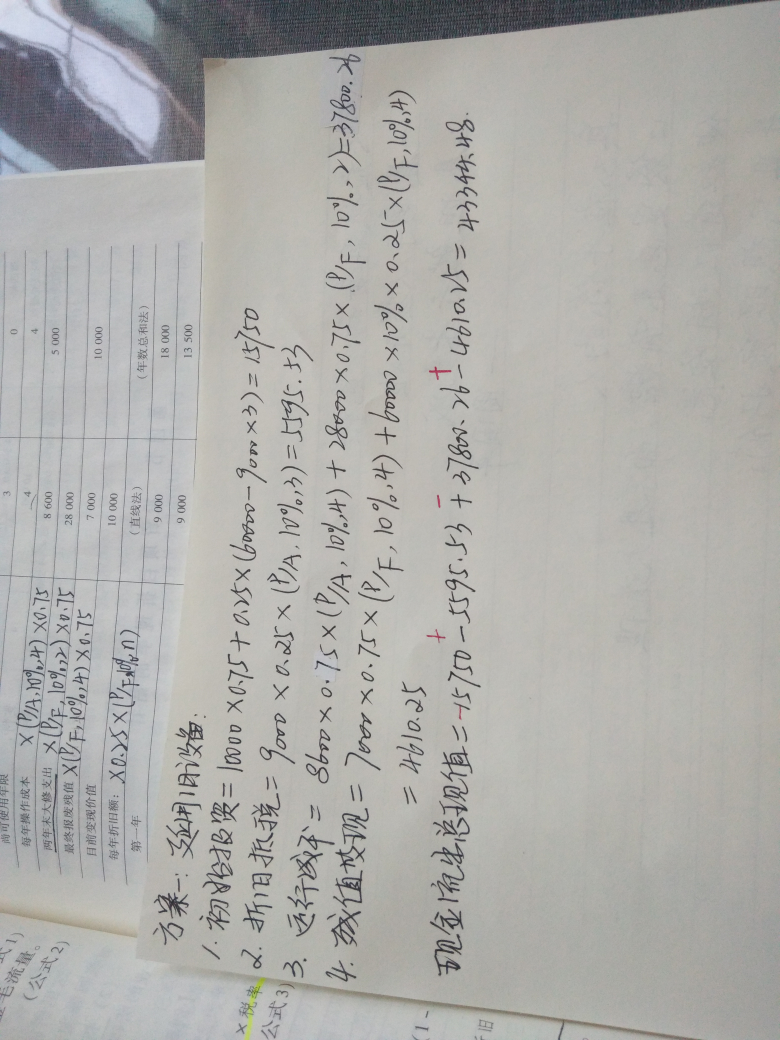 3
0
4
4
8 600
5 000
28 000
7 000
10 000
10 000
(直线法)
(年数总和法)
9 000
18 000
9 000
13 500
尚可使用年限
每年操作成本 ×(P/A,10%,4)×0.75
两年末大修支出 ×(P/F,10%,2)×0.75
最终报废残值 ×(P/F,10%,4)×0.75
目前变现价值
每年折旧额: ×0.25×(P/F,10%,n)
第一年
方案一:延用旧设备:
1. 初始投资=10000×0.75+0.25×(60000-9000×3)=15750
2. 折旧抵税=9000×0.25×(P/A,10%,3)=5595.53
3. 运行成本=8600×0.75×(P/A,10%,4)+28000×0.75×(P/F,10%,2)=37800.26
4. 残值变现=7000×0.75×(P/F,10%,4)+60000×10%×0.25×(P/F,10%,4)
=4610.25
现金流出总现值=-15750-5595.53+37800.26-4610.25=43344.48.
+ - +
式1)
毛流量。
(公式2)
×税率
公式3)
(1-
折旧